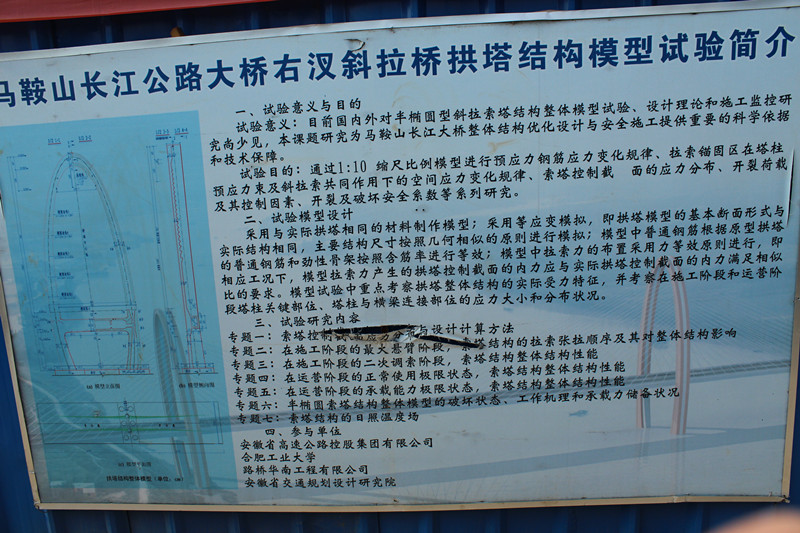 马鞍山长江公路大桥右汊斜拉桥拱塔结构模型试验简介
一、试验意义与目的
试验意义：目前国内外对半椭圆型斜拉索塔结构整体模型试验、设计理论和施工监控研
究尚少见，本课题研究为马鞍山长江大桥整体结构优化设计与安全施工提供重要的科学依据
和技术保障。
试验目的：通过1:10 缩尺比例模型进行预应力钢筋应力变化规律、拉索锚固区在塔柱
预应力束及斜拉索共同作用下的空间应力变化规律、索塔控制截 面的应力分布、开裂荷载
及其控制因素、开裂及破坏安全系数等系列研究。
二、试验模型设计
采用与实际拱塔相同的材料制作模型；采用等应变模拟，即拱塔模型的基本断面形式与
实际结构相同，主要结构尺寸按照几何相似的原则进行模拟；模型中普通钢筋根据原型拱塔
的普通钢筋和劲性骨架按照含筋率进行等效；模型中拉索的布置采用力等效原则进行，即
相应工况下，模型拉索力产生的拱塔控制截面的内力应与实际拱塔控制截面的内力满足相似
比的要求。模型试验中重点考察拱塔整体结构的实际受力特征，并考察在施工阶段和运营阶
段塔柱关键部位、塔柱与横梁连接部位的应力大小和分布状况。
三、试验研究内容
专题一：索塔控制 与设计计算方法
专题二：在施工阶段的最大悬臂阶段，索塔结构的拉索张拉顺序及其对整体结构影响
专题三：在施工阶段的二次调索阶段，索塔结构整体结构性能
专题四：在运营阶段的正常使用极限状态，索塔结构整体结构性能
专题五：在运营阶段的承载能力极限状态，索塔结构整体结构性能
专题六：半椭圆索塔结构整体模型的破坏状态、工作机理和承载力储备状况
专题七：索塔结构的日照温度场
四、参与单位
安徽省高速公路控股集团有限公司
合肥工业大学
路桥华南工程有限公司
安徽省交通规划设计研究院
(a) 模型立面图
(b) 模型侧面图
(c) 模型平面图
拱塔结构整体模型（单位：cm）